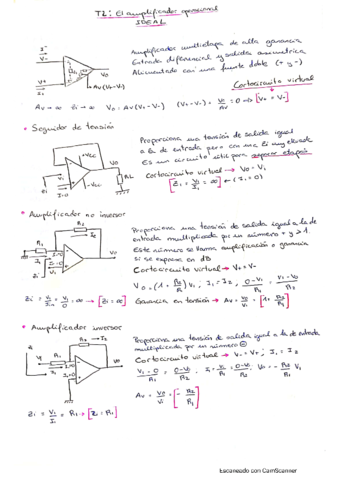 T2: El amplificador operacional
IDEAL
Amplificador multietapa de alta ganancia
Entrada diferencial y salida asimétrica
Alimentado con una fuente doble (+ y -)
Cortocircuito virtual
Av → ∞ Zi → ∞ Vo = Av(V+ - V-) (V+ - V-) = Vo/Av = 0 ⇒ [V+ = V-]
• Seguidor de tensión
Proporciona una tensión de salida igual
a la de entrada pero con una Zi muy elevada
Es un circuito útil para separar etapas
Cortocircuito virtual → Vo = Vi
[Zi = Vi/0 = ∞] ← (Ii = 0)
+Vcc
-Vcc
Vo
RL
• Amplificador no inversor
Proporciona una tensión de salida igual a la de
entrada multiplicada por un número + y ≥ 1.
Este número se llama amplificación o ganancia
si se expresa en dB
Cortocircuito virtual → V+ = V-
Vo = (1 + R2/R1) Vi, I1 = I2, 0-Vi/R1 = Vi-Vo/R2
Zi = Vi/Iin = Vi/0 = ∞ → [Zi = ∞] Ganancia en tensión → Av = Vo/Vi = [1 + R2/R1]
• Amplificador inversor
Proporciona una tensión de salida igual a la de entrada
multiplicada por un número ⊖
Cortocircuito virtual → V- = V+; I1 = I2
Vi-0/R1 = 0-Vo/R2, I1 = Vi/R1 = 0-Vo/R2, Vo = -R2/R1 Vi
Av = Vo/Vi = [-R2/R1]
Zi = Vi/I1 = R1 → [Zi = R1]
Escaneado con CamScanner